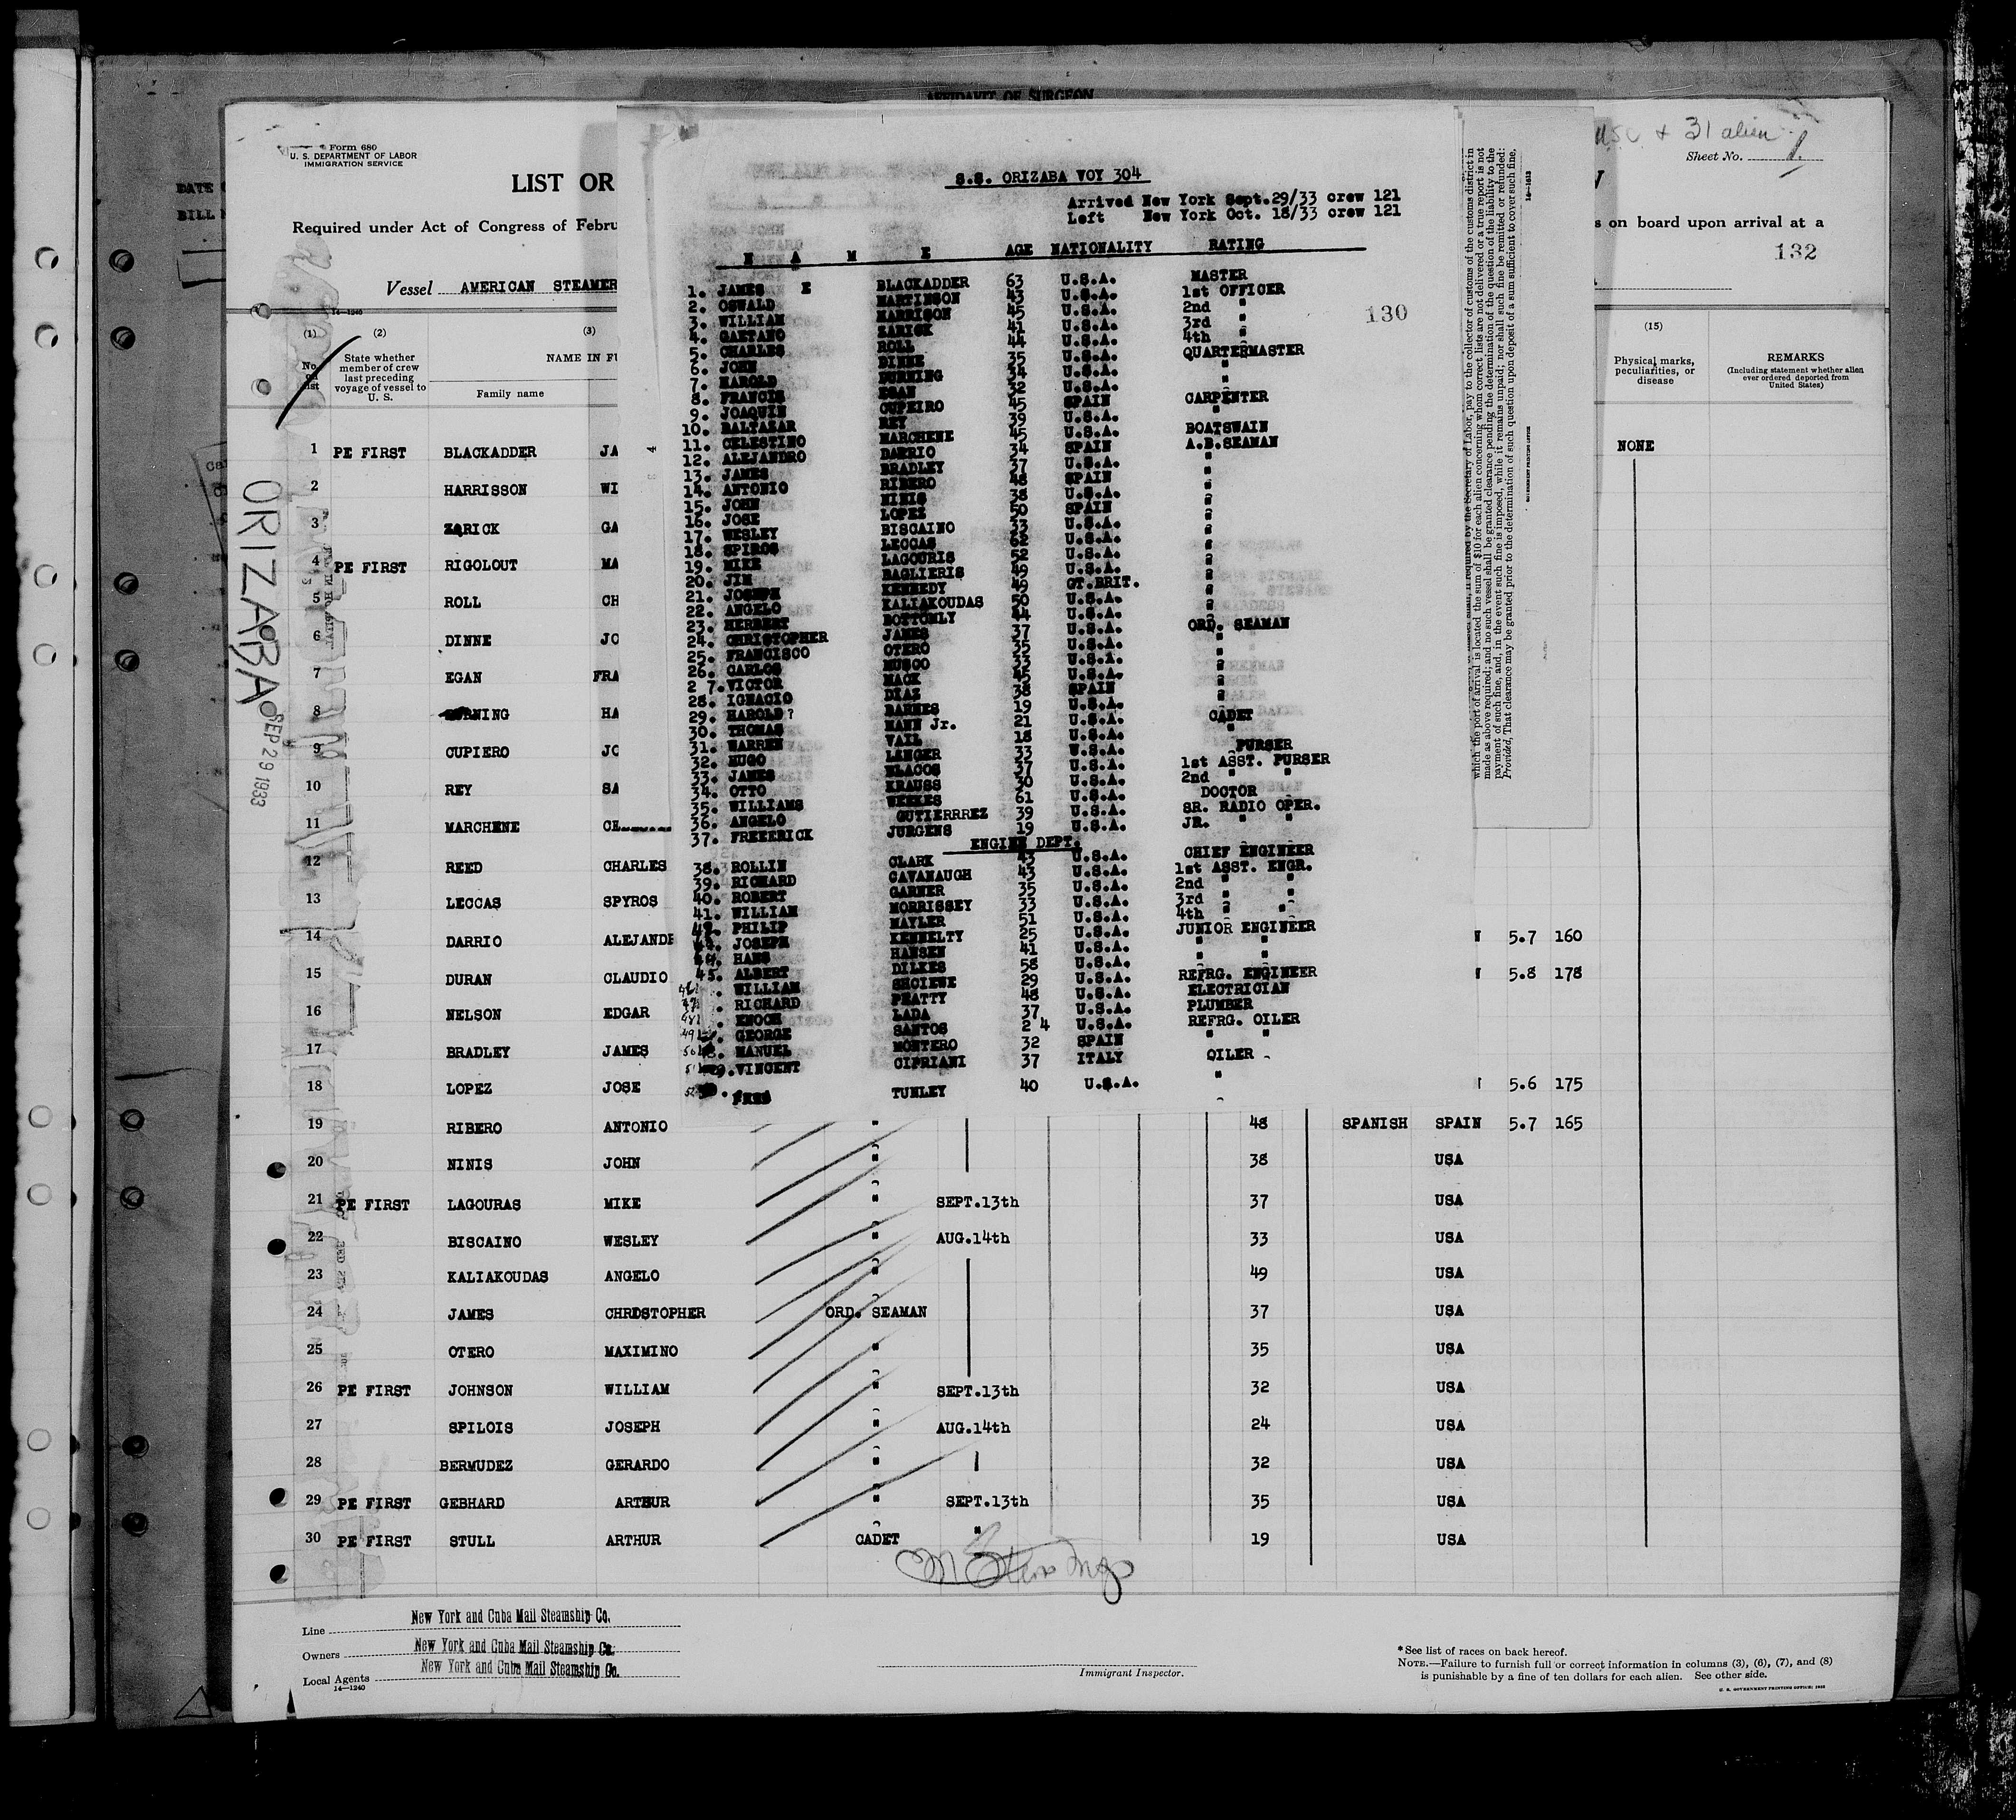 AFFIDAVIT OF SURGEON
Form 680
U. S. DEPARTMENT OF LABOR
IMMIGRATION SERVICE
LIST OR
Required under Act of Congress of Febru
Vessel AMERICAN STEAMER
14-1240
(1) (2) (3)
State whether member of crew last preceding voyage of vessel to U. S.
NAME IN FU
Family name
USC + 31 alien
Sheet No. 1.
s on board upon arrival at a
132
(15)
Physical marks, peculiarities, or disease
REMARKS
(Including statement whether alien ever ordered deported from United States)
NONE
ORIZABA
SEP 29 1933
S.S. ORIZABA VOY 304
Arrived New York Sept.29/33 crew 121
Left New York Oct. 18/33 crew 121
N A M E AGE NATIONALITY RATING
130
1. JAMES E BLACKADDER 63 U.S.A. MASTER
2. OSWALD MARTINSON 43 U.S.A. 1st OFFICER
3. WILLIAM HARRISON 45 U.S.A. 2nd "
4. GAETANO ZARICK 41 U.S.A. 3rd "
5. CHARLES ROLL 44 U.S.A. 4th "
6. JOHN DINNE 35 U.S.A. QUARTERMASTER
7. HAROLD DURNING 34 U.S.A. "
8. FRANCIS EGAN 32 U.S.A. "
9. JOAQUIN CUPEIRO 45 SPAIN CARPENTER
10. BALTASAR REY 39 U.S.A. "
11. CELESTINO MARCHENE 45 U.S.A. BOATSWAIN
12. ALEJANDRO DARRIO 34 SPAIN A.B.SEAMAN
13. JAMES BRADLEY 37 U.S.A. "
14. ANTONIO RIBERO 48 SPAIN "
15. JOHN NINIS 38 U.S.A. "
16. JOSE LOPEZ 50 SPAIN "
17. WESLEY BISCAINO 33 U.S.A. "
18. SPIROS LECCAS 62 U.S.A. "
19. MIKE LAGOURIS 52 U.S.A. "
20. JIM BAGLIERIS 49 U.S.A. "
21. JOSEPH KENNEDY 49 GT.BRIT. "
22. ANGELO KALIAKOUDAS 50 U.S.A. "
23. HERBERT BOTTOMLY 44 U.S.A. "
24. CHRISTOPHER JAMES 37 U.S.A. ORD. SEAMAN
25. FRANCISCO OTERO 35 U.S.A. "
26. CARLOS MUSCO 33 U.S.A. "
2 7. VICTOR MACK 45 U.S.A. "
28. IGNACIO DIAZ 38 SPAIN "
29. HAROLD? BARNES 19 U.S.A. "
30. THOMAS MANN Jr. 21 U.S.A. CADET
31. WARREN VAIL 18 U.S.A. "
32. HUGO LINGER 33 U.S.A. PURSER
33. JAMES BLACOS 37 U.S.A. 1st ASST. PURSER
34. OTTO KRAUSS 30 U.S.A. 2nd " "
35. WILLIAMS WEEKES 61 U.S.A. DOCTOR
36. ANGELO GUTIERRREZ 39 U.S.A. SR. RADIO OPER.
37. FREDERICK JURGENS 19 U.S.A. JR. " "
ENGINE DEPT.
38. ROLLIN CLARK 43 U.S.A. CHIEF ENGINEER
39. RICHARD CAVANAUGH 43 U.S.A. 1st ASST. ENGR.
40. ROBERT GARNER 35 U.S.A. 2nd " "
41. WILLIAM MORRISSEY 33 U.S.A. 3rd " "
42. PHILIP NAYLER 51 U.S.A. 4th " "
JOSEPH KENNELTY 25 U.S.A. JUNIOR ENGINEER
44. HANS HANSEN 41 U.S.A. " "
45. ALBERT DILKES 58 U.S.A. " "
46. WILLIAM 29 U.S.A. REFRG. ENGINEER
47. RICHARD PEATTY 48 U.S.A. ELECTRICIAN
48. ENOCH LADA 37 U.S.A. PLUMBER
49. GEORGE SANTOS 2 4 U.S.A. REFRG. OILER
50. MANUEL MONTERO 32 SPAIN " "
51. VINCENT CIPRIANI 37 ITALY OILER
52. FRED TUNLEY 40 U.S.A. "
which the port of arrival is located the sum of $10 for each alien concerning whom correct lists are not delivered or a true report is not
made as above required; and no such vessel shall be granted clearance pending the determination of the question of the liability to the
payment of such fine, and, in the event such fine is imposed, while it remains unpaid; nor shall such fine be remitted or refunded:
Provided, That clearance may be granted prior to the determination of such question upon deposit of a sum sufficient to cover such fine.
1 PE FIRST BLACKADDER JA
2 HARRISSON WI
3 ZARICK GA
4 PE FIRST RIGOLOUT MA
5 ROLL CH
6 DINNE JO
7 EGAN FRA
8 DURNING HA
9 CUPIERO JO
10 REY SA
11 MARCHENE CE
12 REED CHARLES
13 LECCAS SPYROS
14 DARRIO ALEJANDR 5.7 160
15 DURAN CLAUDIO 5.8 178
16 NELSON EDGAR
17 BRADLEY JAMES
18 LOPEZ JOSE 5.6 175
19 RIBERO ANTONIO " 48 SPANISH SPAIN 5.7 165
20 NINIS JOHN " 38 USA
21 PE FIRST LAGOURAS MIKE " SEPT.13th 37 USA
22 BISCAINO WESLEY " AUG.14th 33 USA
23 KALIAKOUDAS ANGELO " 49 USA
24 JAMES CHRISTOPHER ORD. SEAMAN 37 USA
25 OTERO MAXIMINO " 35 USA
26 PE FIRST JOHNSON WILLIAM " SEPT.13th 32 USA
27 SPILOIS JOSEPH " AUG.14th 24 USA
28 BERMUDEZ GERARDO " 32 USA
29 PE FIRST GEBHARD ARTHUR " SEPT.13th 35 USA
30 PE FIRST STULL ARTHUR CADET " 19 USA
Line New York and Cuba Mail Steamship Co.
Owners New York and Cuba Mail Steamship Co.
Local Agents New York and Cuba Mail Steamship Co.
14-1240
Immigrant Inspector.
*See list of races on back hereof.
NOTE.—Failure to furnish full or correct information in columns (3), (6), (7), and (8)
is punishable by a fine of ten dollars for each alien. See other side.
U. S. GOVERNMENT PRINTING OFFICE: 1932